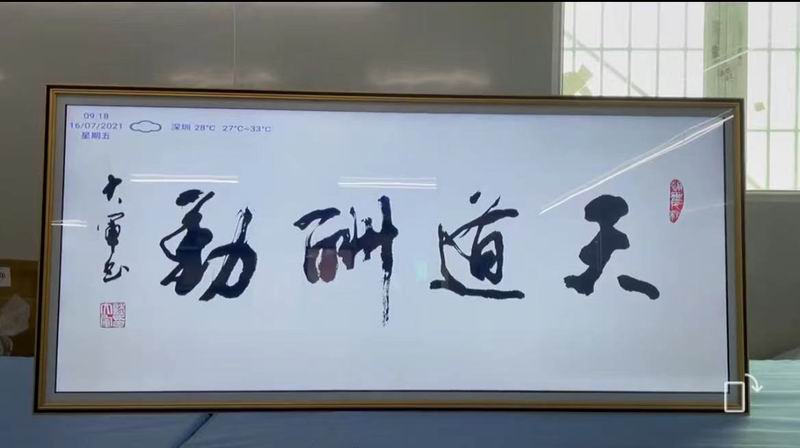 09:18
16/07/2021
星期五
深圳 28°C 27°C~33°C
天道酬勤
大軍书